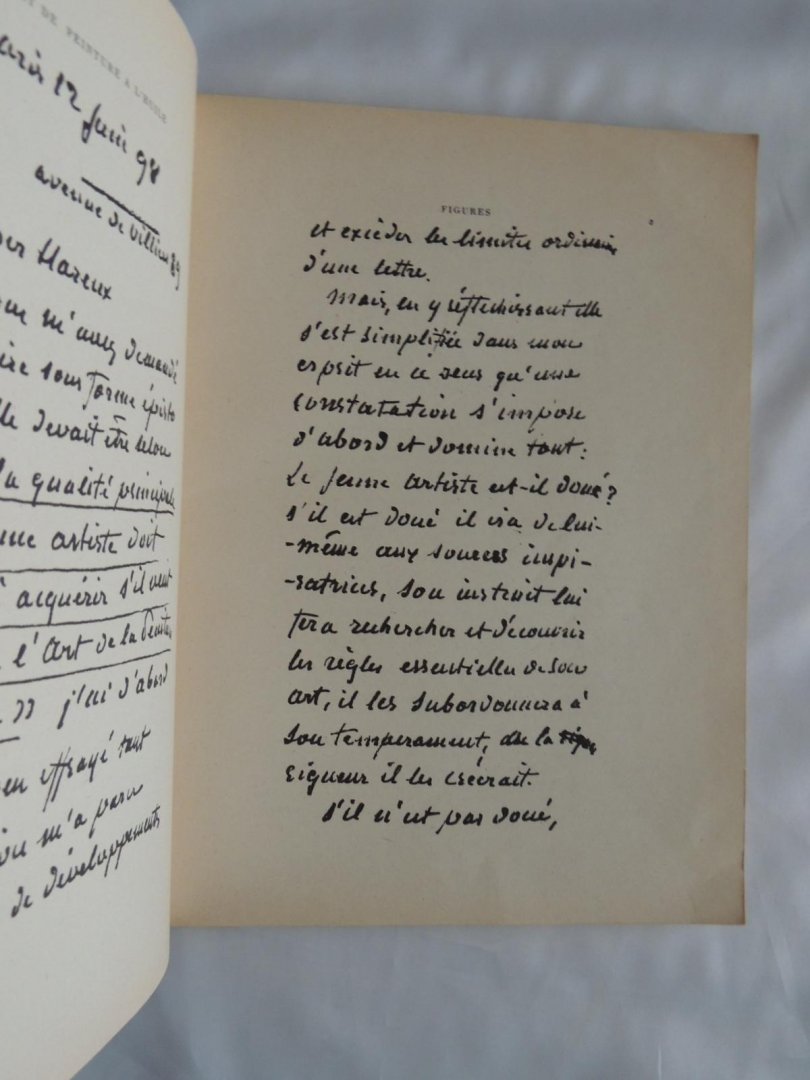 DE PEINTURE A L'HUILE
12 Juin 98
avenue de Villiers 89
Hareux
m'avez demandé
sous forme épisto
devait être selon
la qualité principale
artiste doit
acquérir s'il veut
l'Art de la Peinture
j'ai d'abord
effrayé tant
m'a paru
de développements
FIGURES
et excéder les limites ordinaires
d'une lettre.
Mais, en y réfléchissant elle
s'est simplifiée dans mon
esprit en ce sens qu'une
constatation s'impose
d'abord et domine tout:
Le jeune artiste est-il doué?
S'il est doué il ira de lui-
-même aux sources inspi-
-ratrices, son instinct lui
fera rechercher et découvrir
les règles essentielles de son
art, il les subordonnera à
son temperament, de la
rigueur il les créerait.
S'il n'est pas doué,